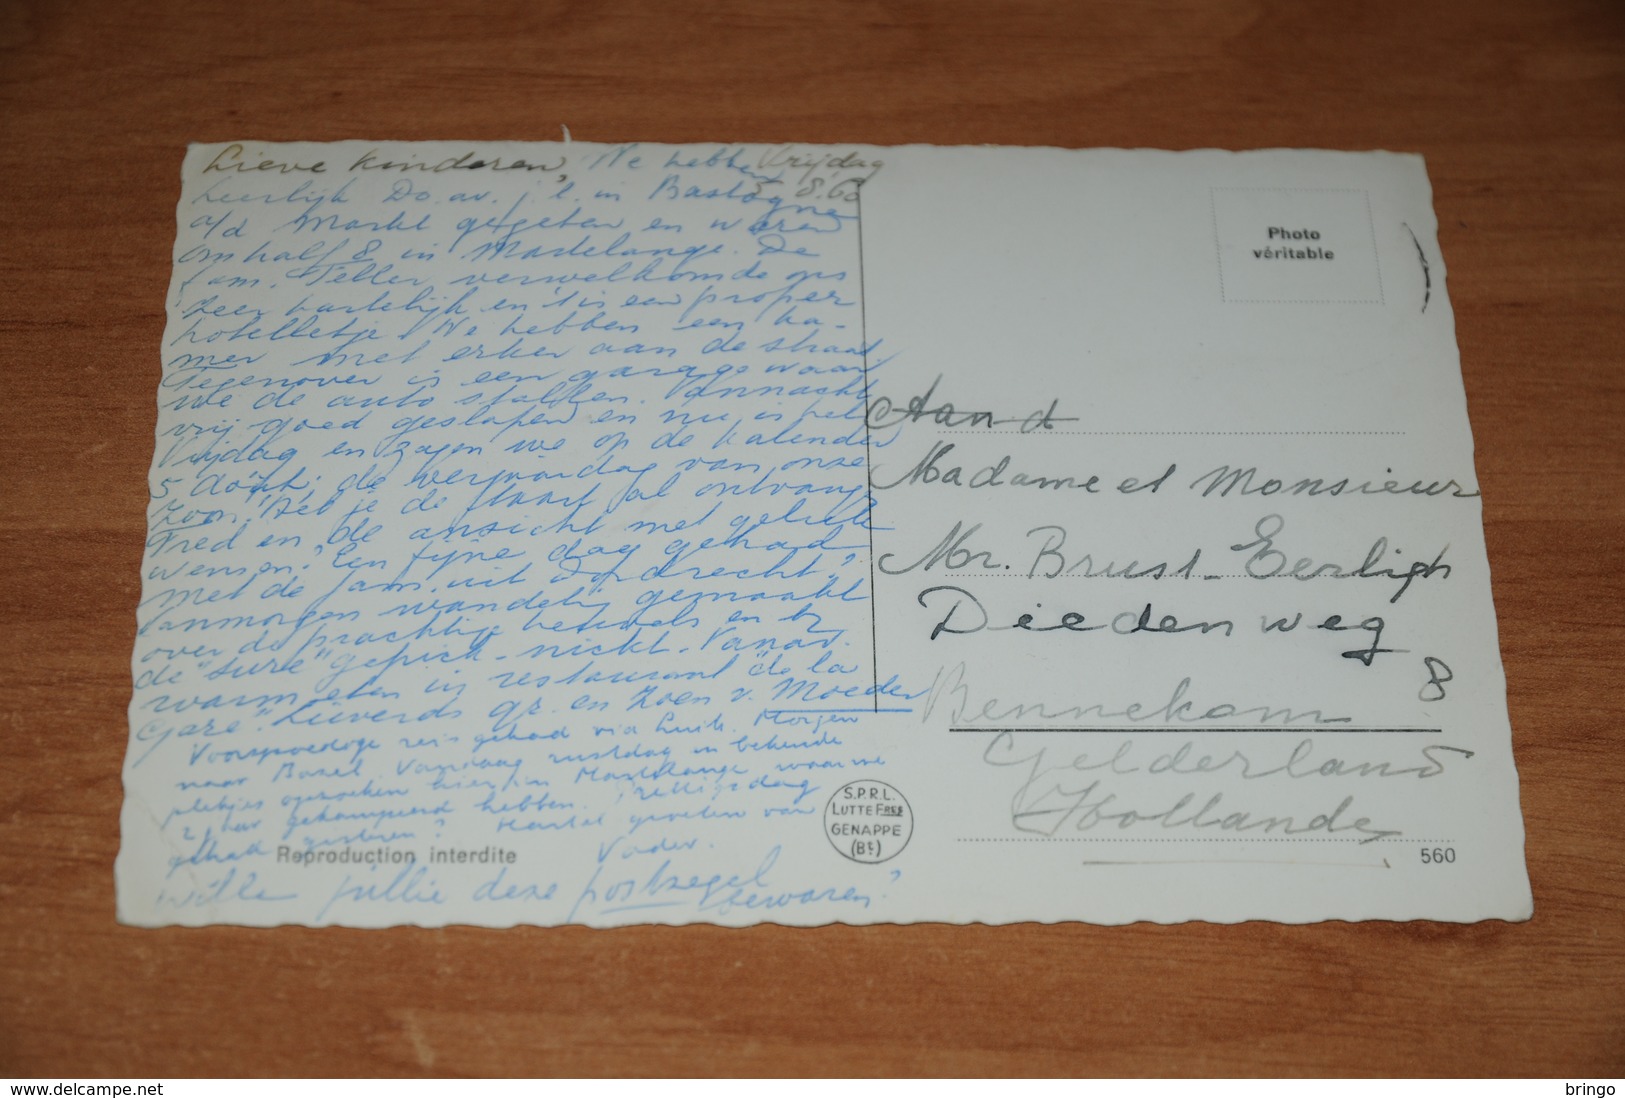 Lieve kinderen, We hebben Vrijdag
heerlijk Do. av. j.l. in Bastogne 5.8.63
a/d Markt gegeten en waren
om half 8 in Martelange. De
fam. Teller verwelkomde ons
zeer hartelijk en 't is een proper
hotelletje! We hebben een ka-
mer met erker aan de straat.
Tegenover is een garage waar
we de auto stallen. Vannacht
vrij goed geslapen en nu is het
Vrijdag en zagen we op de kalender
5 Août; de verjaardag van onze
zoon, zei je de kaart al ontvang
Fred en de ansicht met geluk
wensen. Een fijne dag gehad
met de fam. uit Dordrecht,
vanmorgen wandeling gemaakt
over de prachtige heuvels en bij
de "Sure" gepick-nickt. Vanav.
warm eten in restaurant "de la
Gare". Lieverds gr. en zoen v. Moeder
Voorspoedige reis gehad via Luik. Morgen
naar Basel. Vandaag rustdag en bekende
plekjes opzoeken hier in Martelange waar we
2 jaar gekampeerd hebben. Prettige dag
gehad gisteren? Hartel. groeten van
Vader.
Reproduction interdite
Willen jullie deze postzegel bewaren?
Photo
véritable
Aan d
Madame et Monsieur
Mr. Brust-Eerligh
Diedenweg
8
Bennekom
Gelderland
Hollande
S.P.R.L.
LUTTE FRES
GENAPPE
(Bt.)
560
www.delcampe.net
bringo